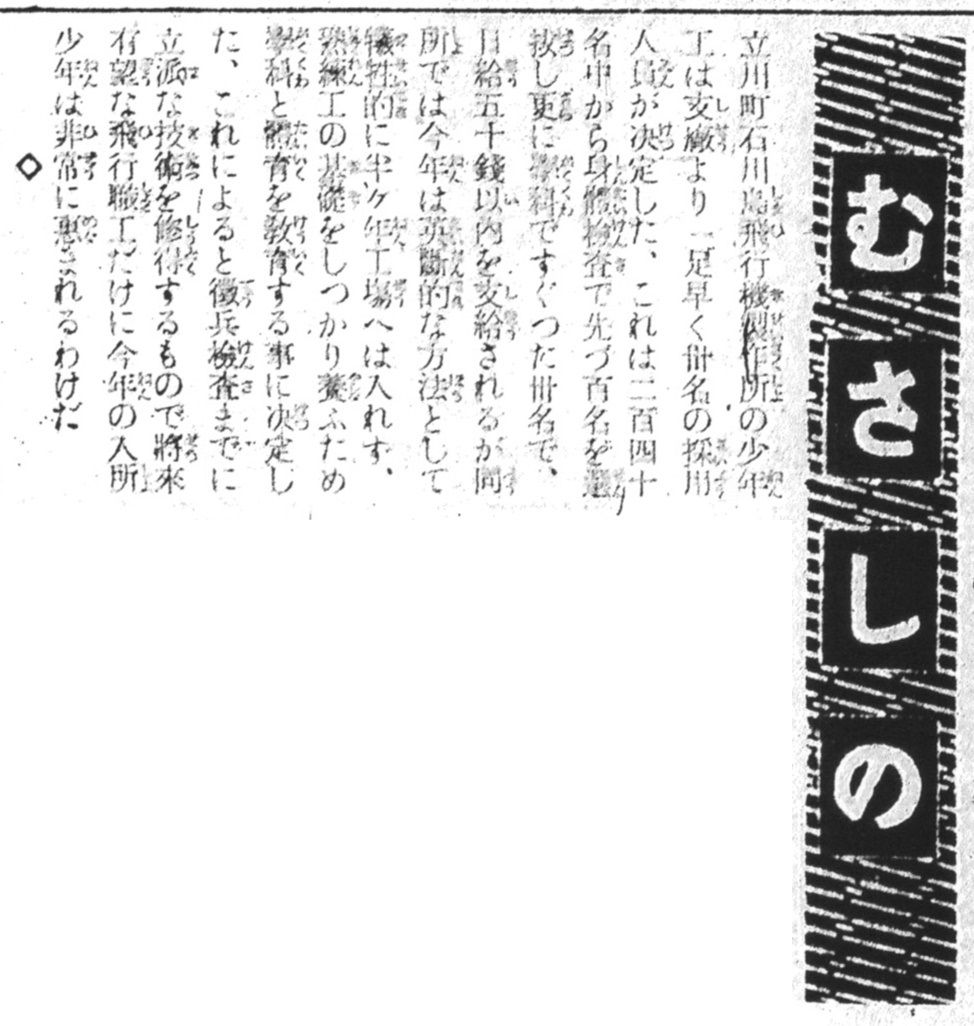 むさしの
立川町石川島飛行機製作所の少年
工は支廠より一足早く卅名の採用
人員が決定した、これは二百四十
名中から身體檢査で先づ百名を選
抜し更に學科ですぐつた卅名で、
日給五十錢以内を支給されるが同
所では今年は英斷的な方法として
犠牲的に半ケ年工場へは入れず、
熟練工の基礎をしつかり養ふため
學科と體育を敎育する事に決定し
た、これによると徵兵檢査までに
立派な技術を修得するもので將來
有望な飛行職工だけに今年の入所
少年は非常に惠まれるわけだ
◇